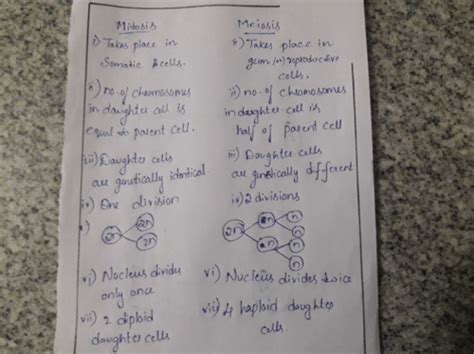 Mitosis
i) Takes place in
Somatic cells.
ii) no. of chromosomes
in daughter cell is
equal to parent cell.
iii) Daughter cells
are genetically identical
iv) One division
v)
2n
2n
2n
vi) Nucleus divides
only once
vii) 2 diploid
daughter cells
Meiosis
i) Takes place in
germ (or) reproductive
cells.
ii) no. of chromosomes
in daughter cell is
half of parent cell
iii) Daughter cells
are genetically different
iv) 2 divisions
2n
n
n
n
n
n
n
vi) Nucleus divides twice
vii) 4 haploid daughter
cells.